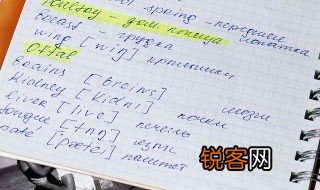 spring - передние
Poultry - дом. птица лопатка
breast - грудка
wing [wiŋ] крылышки
Offal
Brains [breins] мозги
kidney [kidni] почки
liver [livə] печень
tongue [tʌŋ] язык
paté [pætei] паштет
锐客网